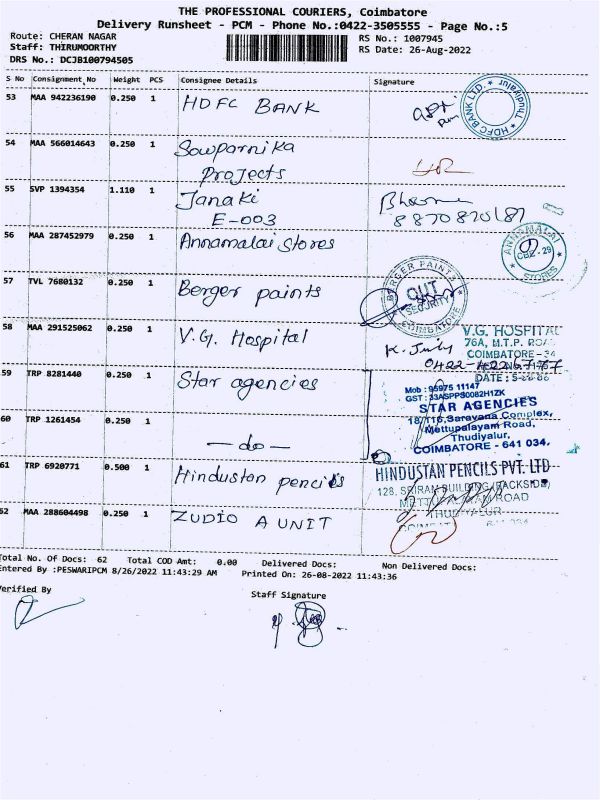 THE PROFESSIONAL COURIERS, Coimbatore
Delivery Runsheet - PCM - Phone No.:0422-3505555 - Page No.:5
Route: CHERAN NAGAR
RS No.: 1007945
Staff: THIRUMOORTHY
RS Date: 26-Aug-2022
DRS No.: DCJB100794505
S No Consignment_No Weight PCS Consignee Details Signature
53 MAA 942236190 0.250 1 HDFC BANK
HDFC BANK LTD. * Thudiyalur *
54 MAA 566014643 0.250 1 Sowparnika
Projects
55 SVP 1394354 1.110 1 Janaki
E-003
8870820187
56 MAA 287452979 0.250 1 Annamalai Stores
ANNAMALAI
CBE-29
STORES
57 TVL 7680132 0.250 1 Berger paints
BERGER PAINTS
OUT
SECURITY
COIMBATORE
58 MAA 291525062 0.250 1 V.G. Hospital
V.G. HOSPITAL
76A, M.T.P. ROAD
COIMBATORE - 34
K. July
59 TRP 8281440 0.250 1 Star agencies
DATE :
Mob : 95975 11147
GST : 33ASPPS0082H1ZK
STAR AGENCIES
18/116, Saravana Complex,
Mettupalayam Road,
Thudiyalur,
COIMBATORE - 641 034.
60 TRP 1261454 0.250 1 — do —
61 TRP 6920771 0.500 1 Hindustan pencils
HINDUSTAN PENCILS PVT. LTD
128, SRIRAM BUILDING (BACKSIDE)
METTUPALAYAM ROAD
THUDIYALUR
62 MAA 288604498 0.250 1 ZUDIO A UNIT
Total No. Of Docs: 62 Total COD Amt: 0.00 Delivered Docs: Non Delivered Docs:
Entered By :PESWARIPCM 8/26/2022 11:43:29 AM Printed On: 26-08-2022 11:43:36
Verified By
Staff Signature